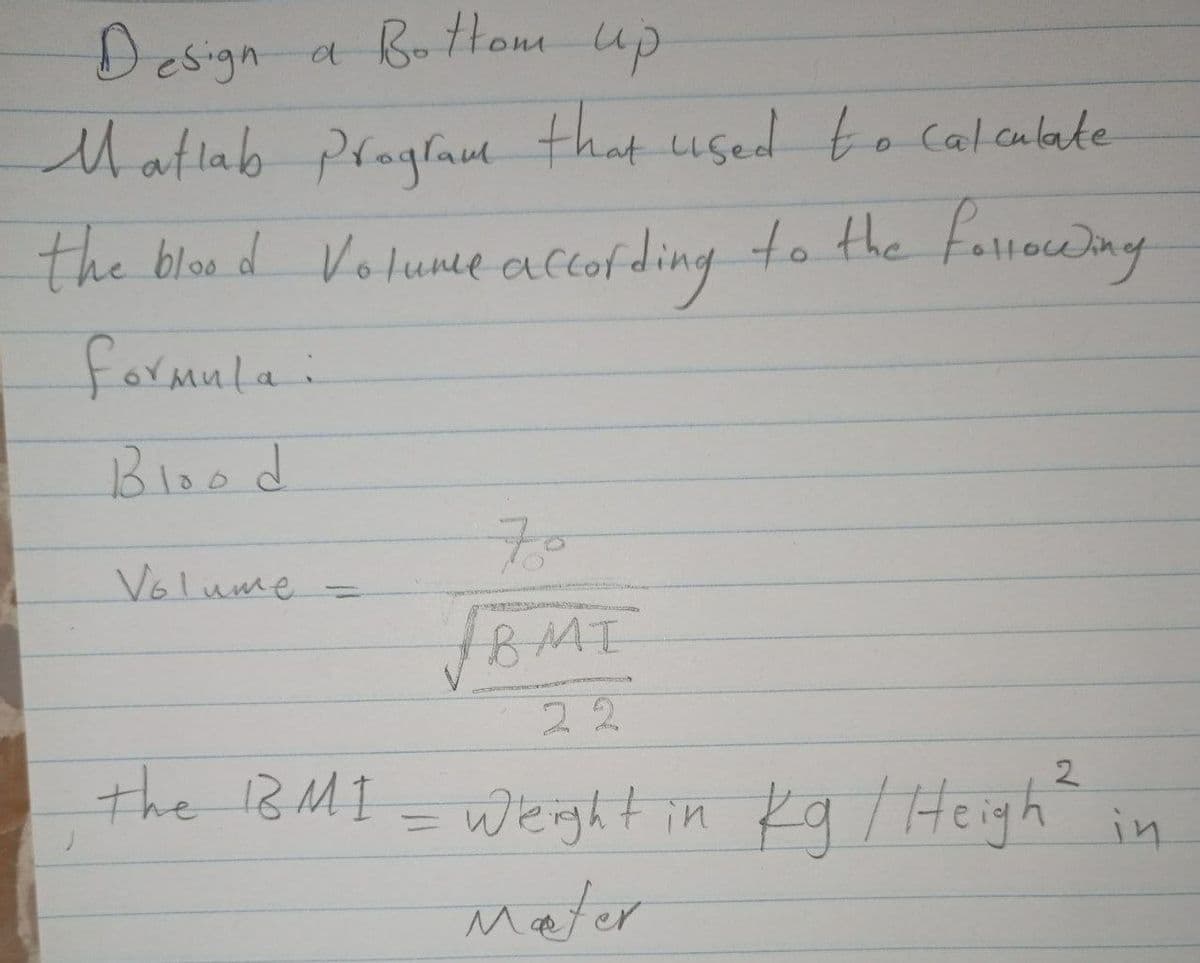 Design a Bottom up
Matlab program that used to calculate
the blood Volume according to the following
formula:
Blood
70
Volume =
√BMI
22
, the BMI = Weight in kg / Heigh² in
Meter